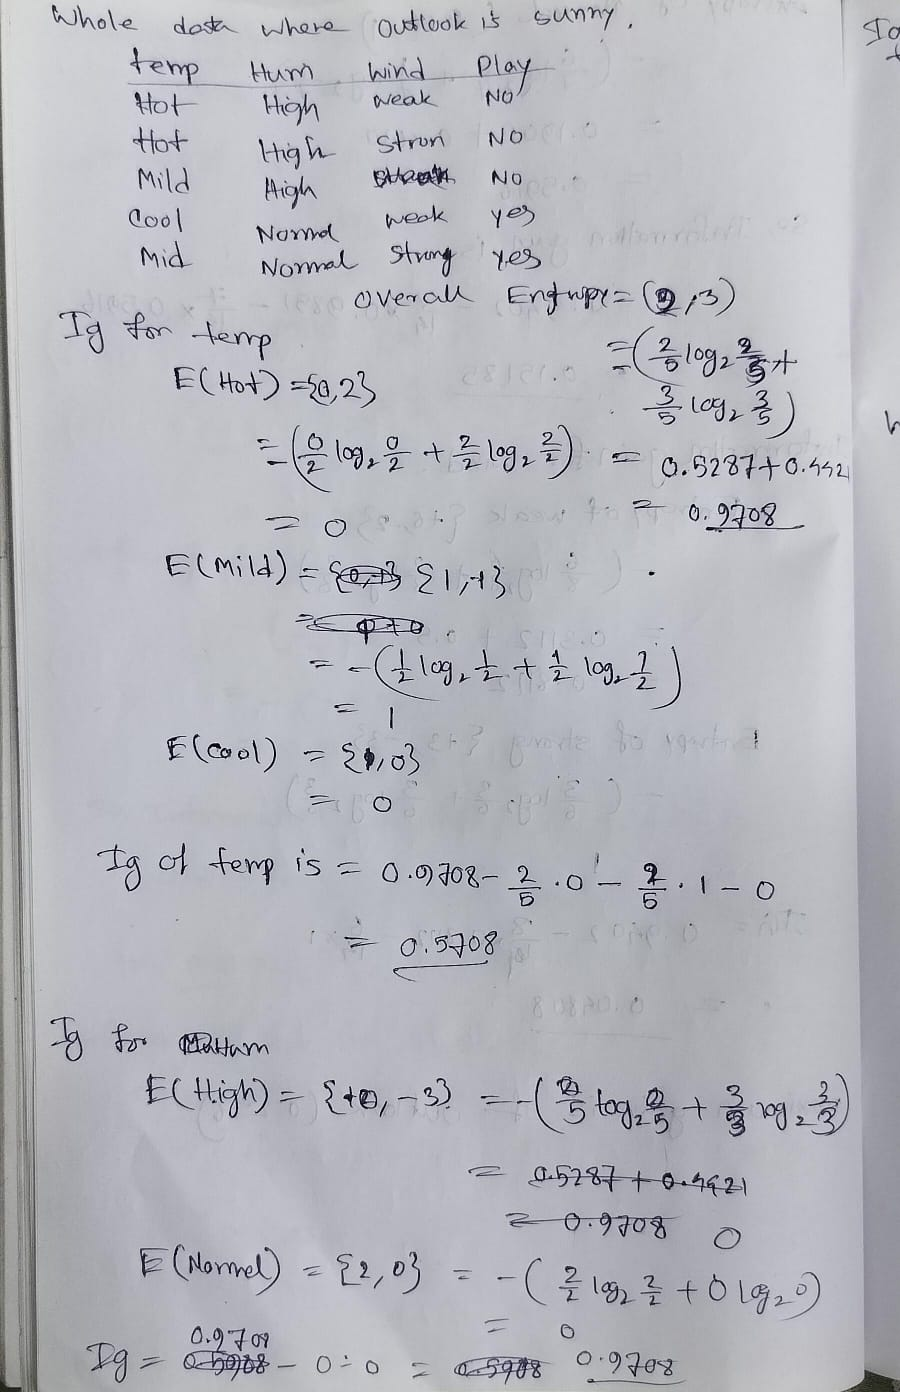 Whole data where outlook is sunny.
temp Hum Wind Play
Hot High weak NO
Hot High Stron NO
Mild High NO
Cool Normal weak yes
Mid Normal Strong yes
overall Entropy = (2,3)
Ig for temp
= (2/5 log₂ 2/5 +
3/5 log₂ 3/5)
E(Hot) = {0,2}
= -(0/2 log₂ 0/2 + 2/2 log₂ 2/2)
= 0.5287 + 0.442
= 0
= 0.9708
E(Mild) = {1,1}
= -(1/2 log₂ 1/2 + 1/2 log₂ 1/2)
= 1
E(Cool) = {1,0}
= 0
Ig of temp is = 0.9708 - 2/5 . 0 - 2/5 . 1 - 0
= 0.5708
Ig for Hum
E(High) = {+0, -3} = -(0/5 log₂ 0/5 + 3/3 log₂ 3/3)
= 0.5287 + 0.4421
= 0.9708 0
E(Normel) = {2,0} = -(2/2 log₂ 2/2 + 0 log₂ 0)
= 0
Ig = 0.9708 - 0 - 0 = 0.9708